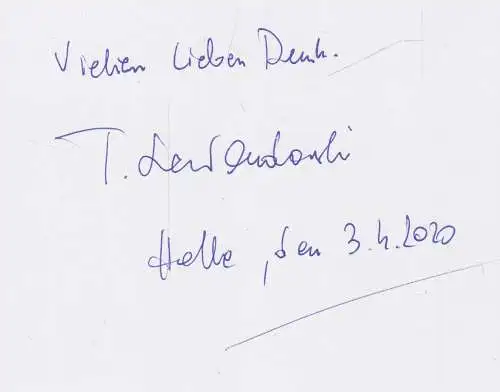 Vielen lieben Dank.
T. Lewandowski
Halle, den 3.4.2020